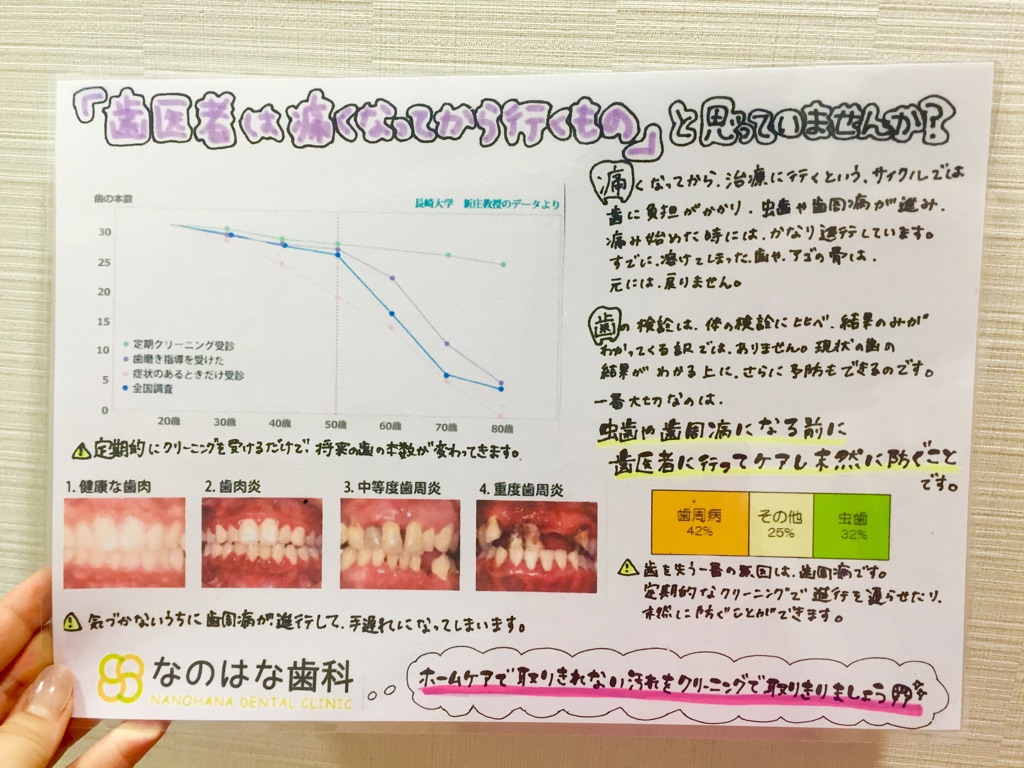 「歯医者は痛くなってから行くもの」と思っていませんか?
歯の本数
長崎大学 新庄教授のデータより
30
25
20
15
10
5
0
定期クリーニング受診
歯磨き指導を受けた
症状のあるときだけ受診
全国調査
20歳 30歳 40歳 50歳 60歳 70歳 80歳
定期的にクリーニングを受けるだけで、将来の歯の本数が変わってきます。
1. 健康な歯肉
2. 歯肉炎
3. 中等度歯周炎
4. 重度歯周炎
気づかないうちに歯周病が進行して、手遅れになってしまいます。
なのはな歯科
NANOHANA DENTAL CLINIC
痛くなってから、治療に行くという、サイクルでは
歯に負担がかかり、虫歯や歯周病が進み、
痛み始めた時には、かなり進行しています。
すでに、溶けてしまった歯や、アゴの骨は、
元には、戻りません。
歯の検診は、体の検診に比べ、結果のみが
わかってくる訳では、ありません。現状の歯の
結果がわかる上に、さらに予防もできるのです。
一番大切なのは、
虫歯や歯周病になる前に
歯医者に行ってケアし未然に防ぐこと
です。
歯周病 その他 虫歯
42% 25% 32%
歯を失う一番の原因は、歯周病です。
定期的なクリーニングで進行を遅らせたり、
未然に防ぐことができます。
ホームケアで取りきれない汚れをクリーニングで取りきりましょう